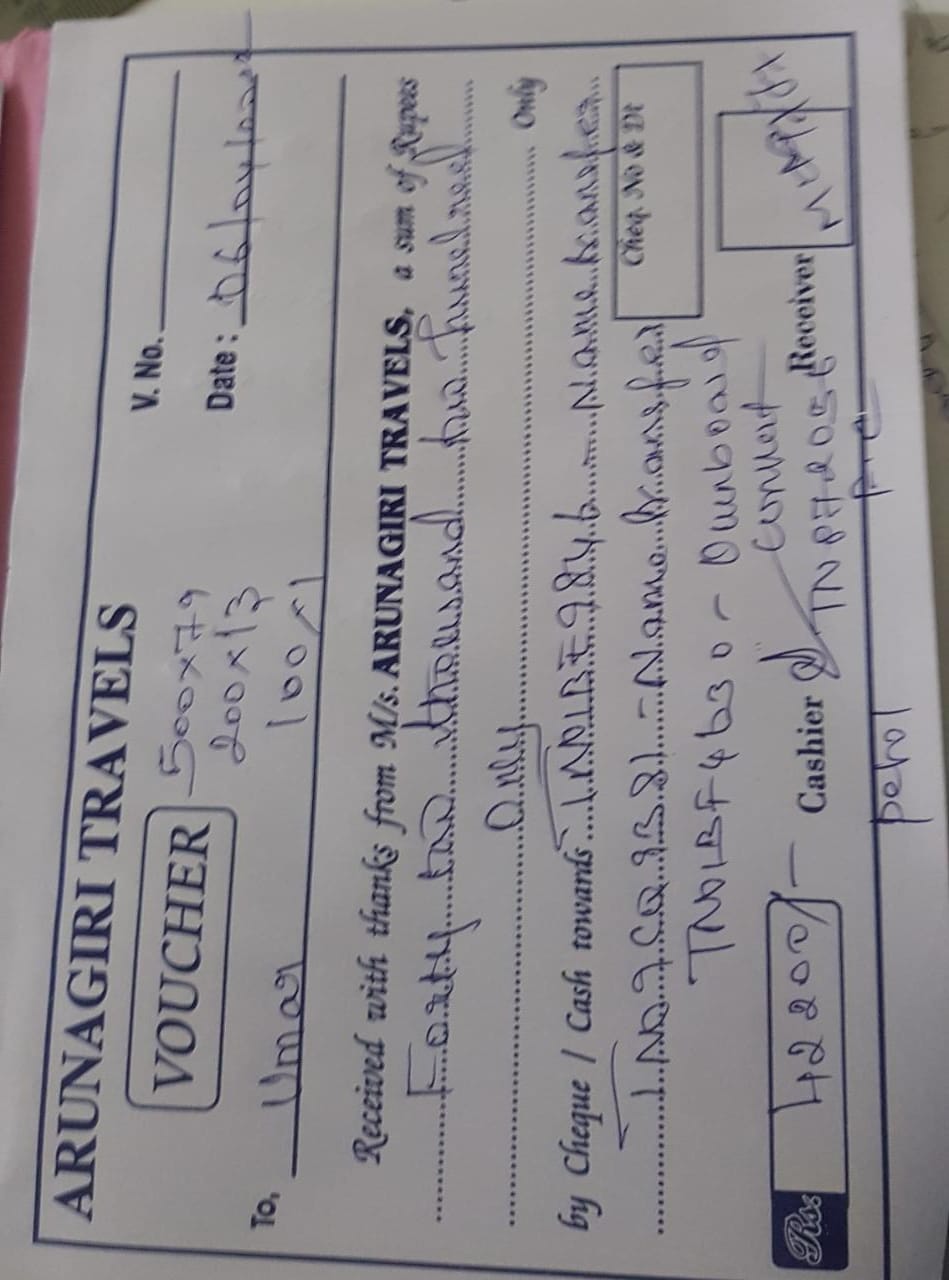 ARUNAGIRI TRAVELS
VOUCHER
500x79
200x13
100x1
V. No.
Date : 06/04/2022
To, Umar
Received with thanks from M/s. ARUNAGIRI TRAVELS, a sum of Rupees
Forty two thousand two hundred
Only Only
by Cheque / Cash towards TN01BE9846 - Name transfer
TN07CQ8381 - Name transfer
Cheq. No & Dt
TN01BF4630 - Ownboard
Convert
TN07
Rs. 42200/- Cashier Receiver
petrol